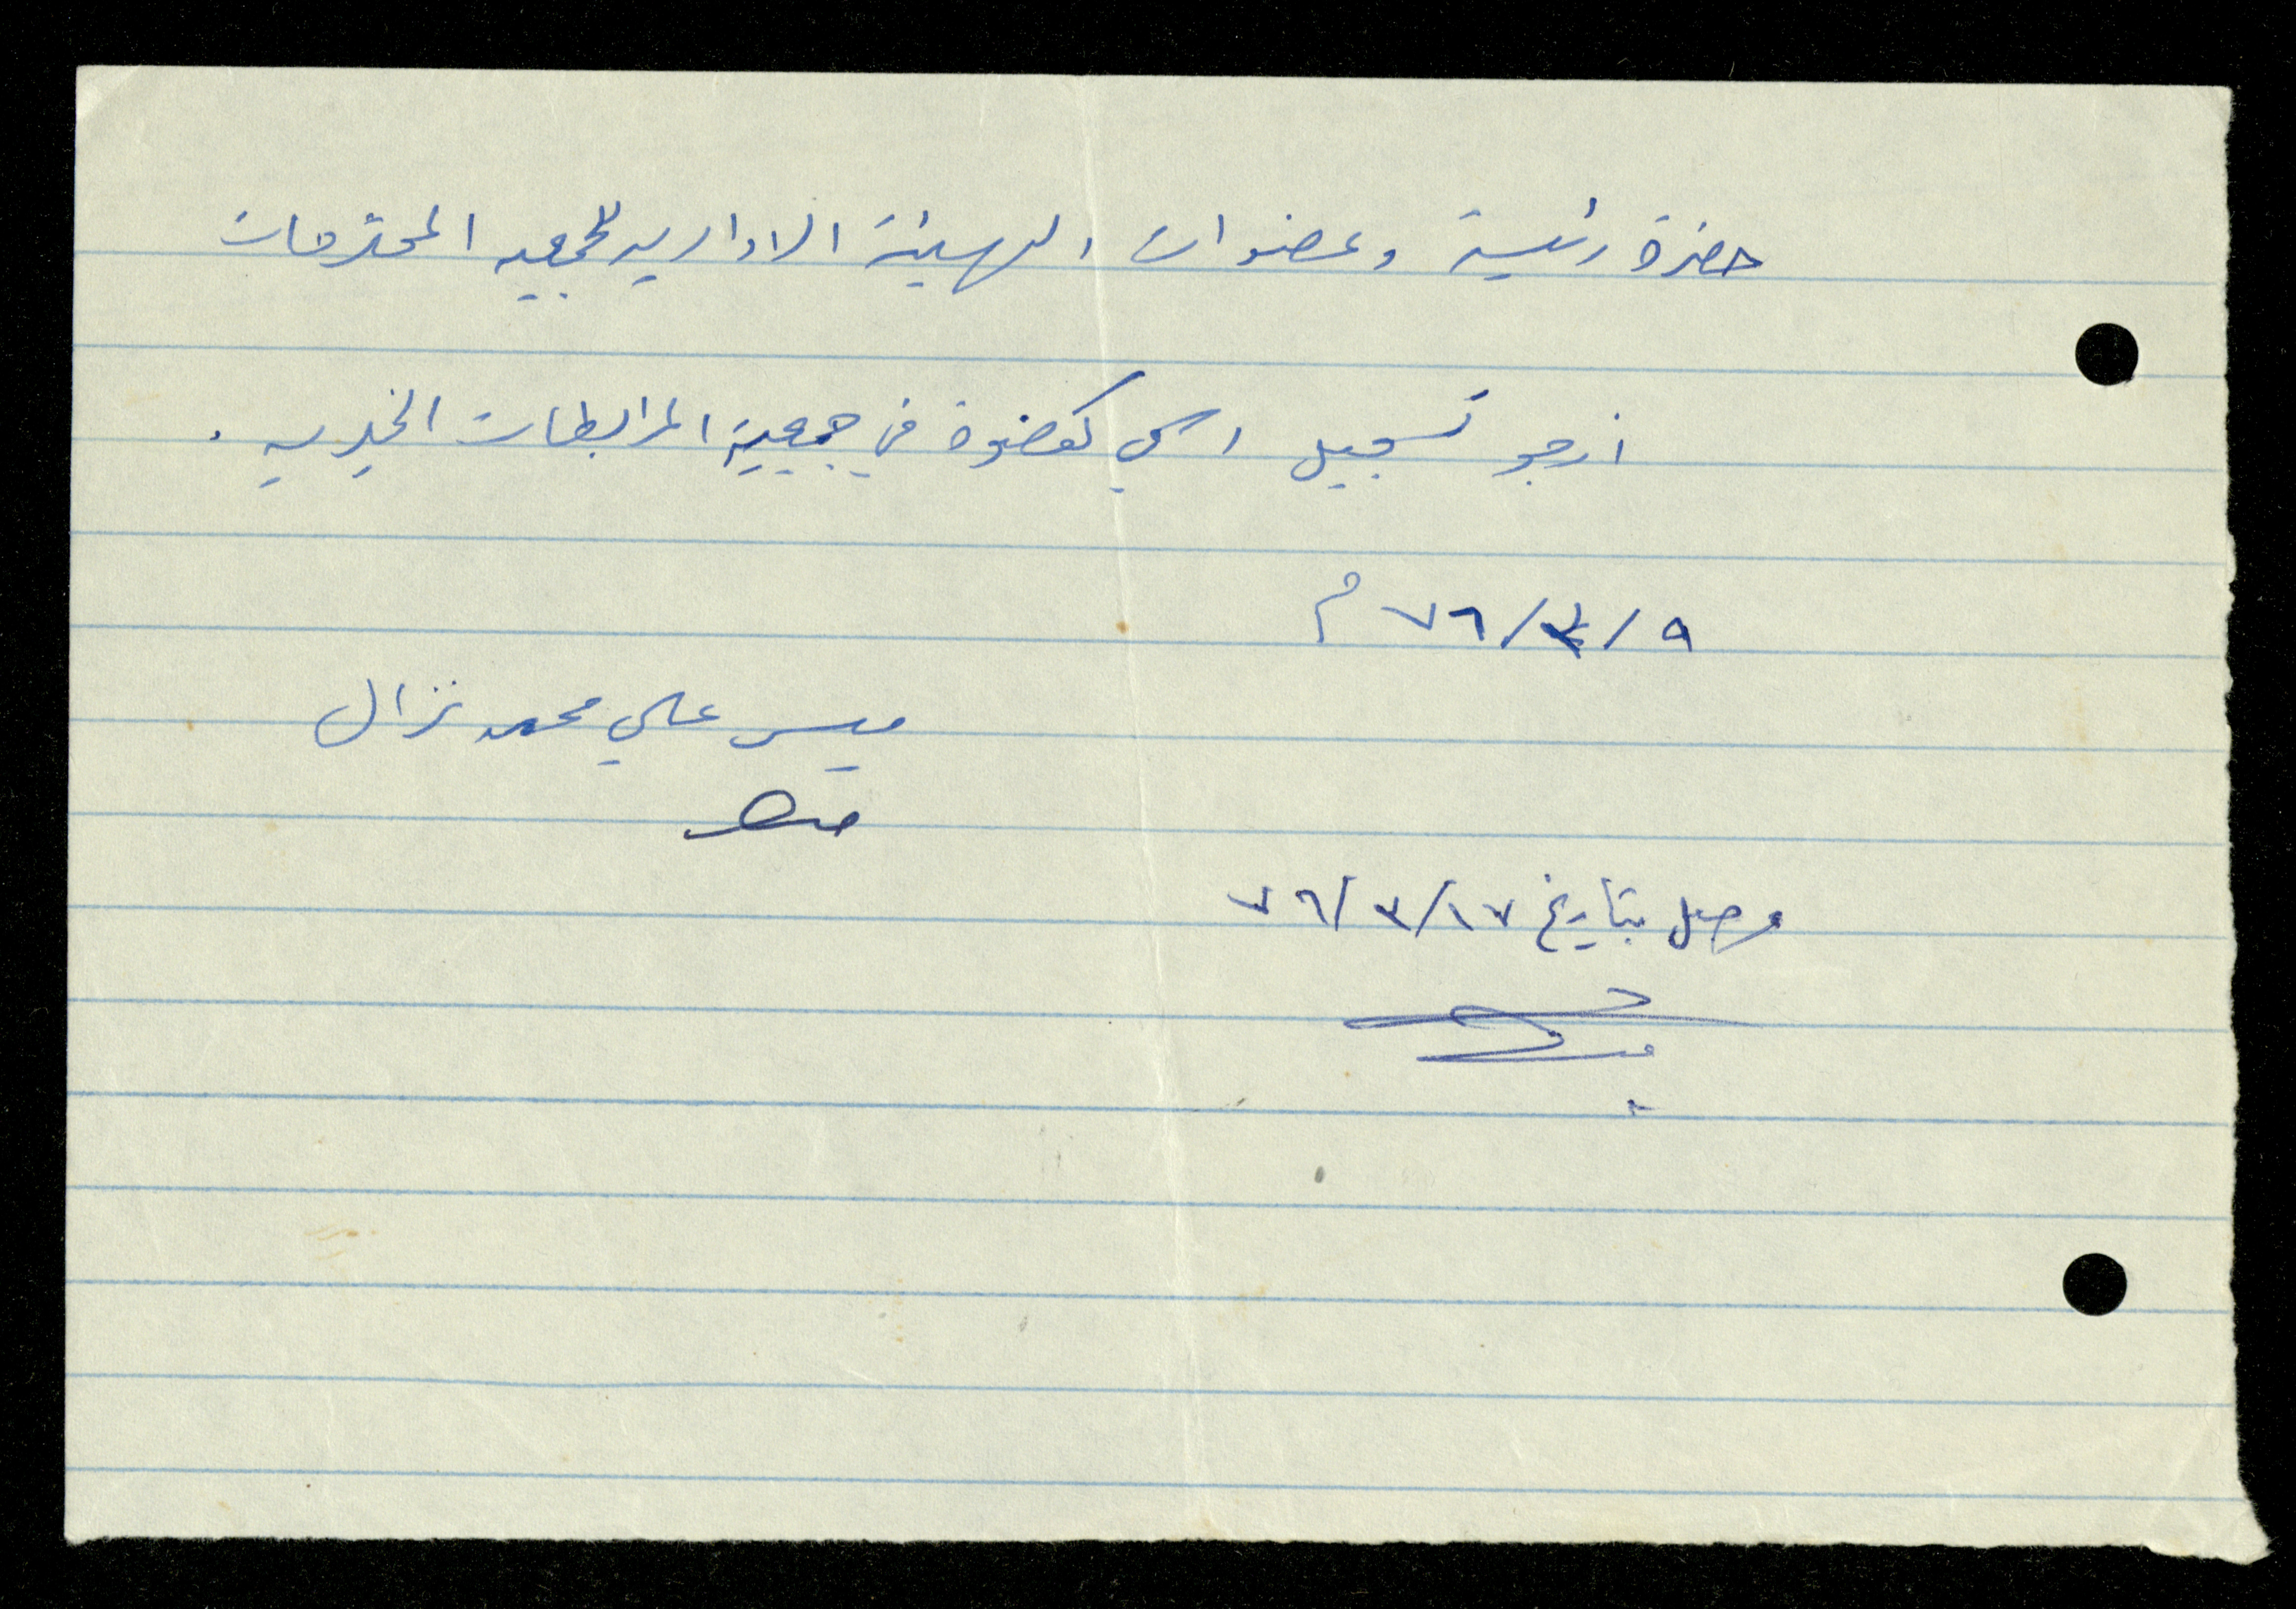 حضرة رئيسة وعضوات الهيئة الاداريه للجمعيه المحترمات
ارجو تسجيل اسمي كعضوة في جمعية المرابطات الخيريه .
٩/٣/٧٦ م
ميسر علي محمد نزال
وصل بتاريخ ١٧/٣/٧٦